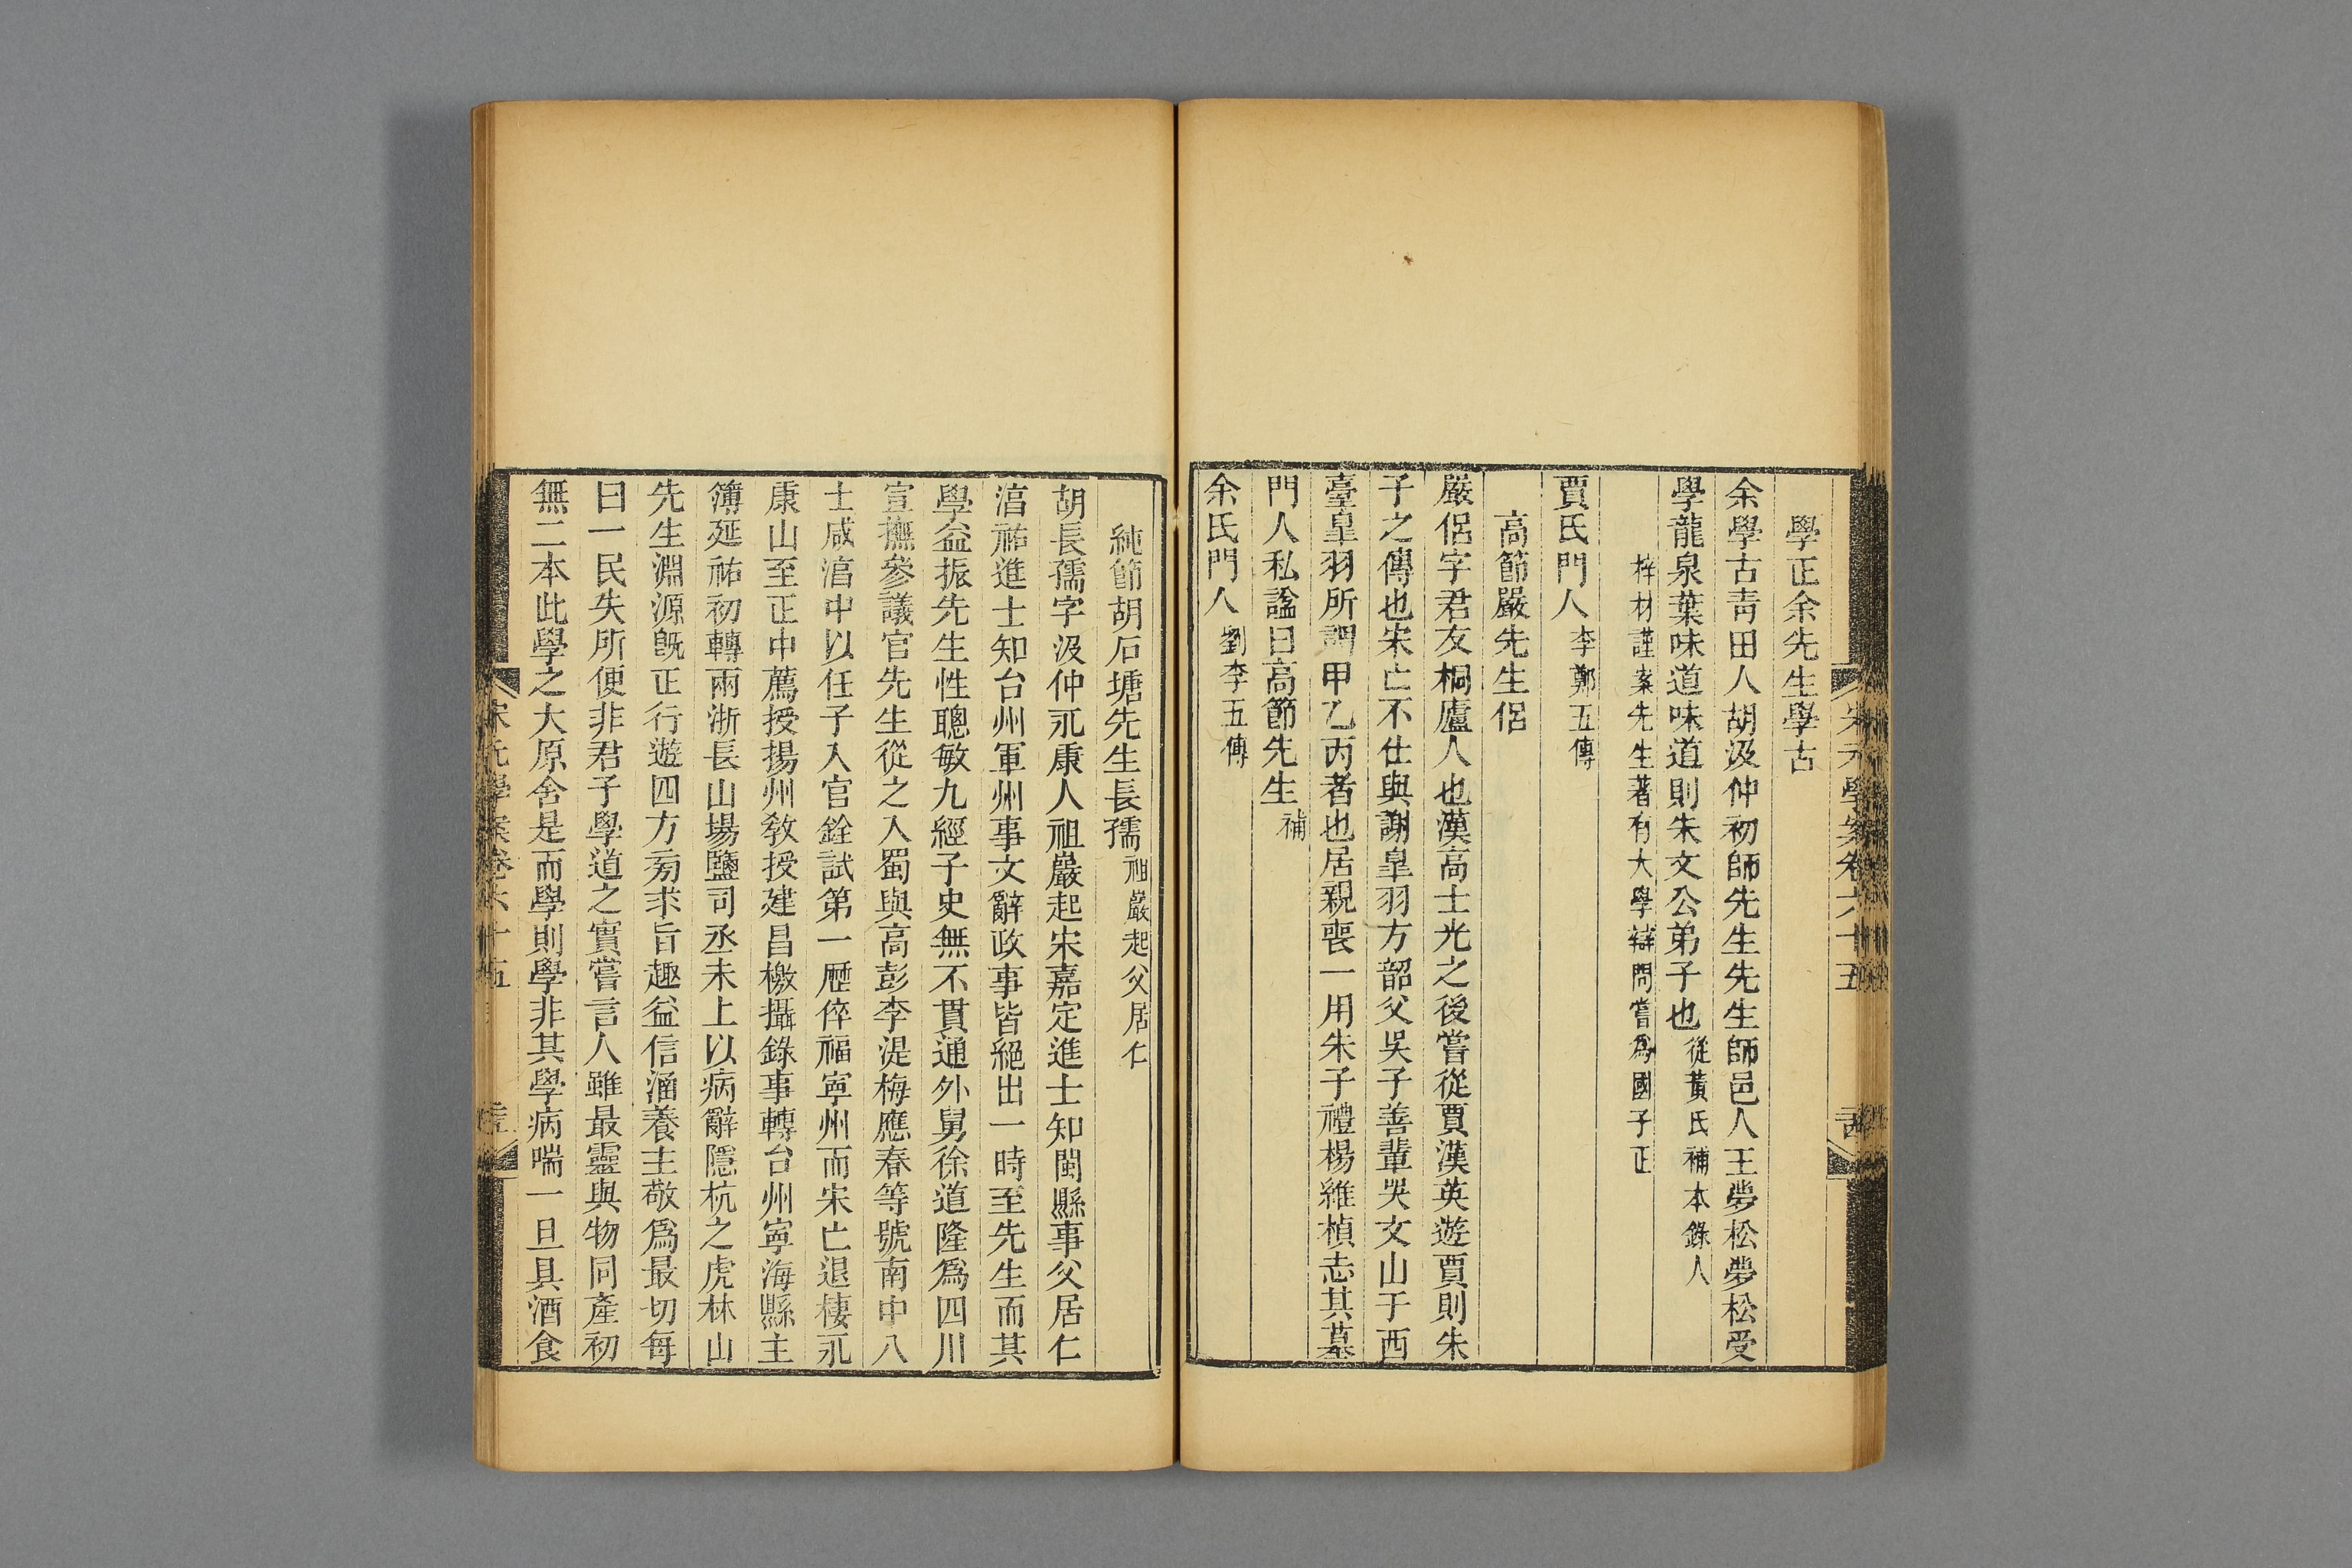 宋元學案卷六十五
學正余先生學古
余學古靑田人胡汲仲初師先生先生師邑人王夢松夢松受
學龍泉葉味道味道則朱文公弟子也從黃氏補本錄人
梓材謹案先生著有大學辯問嘗爲國子正
賈氏門人李鄭五傳
高節嚴先生侶
嚴侶字君友桐廬人也漢高士光之後嘗從賈漢英遊賈則朱
子之傳也宋亡不仕與謝皐羽方韶父吳子善輩哭文山于西
臺皐羽所謂甲乙丙者也居親喪一用朱子禮楊維楨志其墓
門人私諡曰高節先生補
余氏門人劉李五傳
純節胡石塘先生長孺祖巖起父居仁
胡長孺字汲仲永康人祖巖起宋嘉定進士知閩縣事父居仁
淳祐進士知台州軍州事文辭政事皆絕出一時至先生而其
學益振先生性聰敏九經子史無不貫通外舅徐道隆爲四川
宣撫參議官先生從之入蜀與高彭李湜梅應春等號南中八
士咸淳中以任子入官銓試第一歷倅福寧州而宋亡退棲永
康山至正中薦授揚州敎授建昌檄攝錄事轉台州寧海縣主
簿延祐初轉兩浙長山場鹽司丞未上以病辭隱杭之虎林山
先生淵源旣正行遊四方旁求旨趣益信涵養主敬爲最切每
曰一民失所便非君子學道之實嘗言人雖最靈與物同產初
無二本此學之大原舍是而學則學非其學病喘一旦具酒食
宋元學案卷六十五